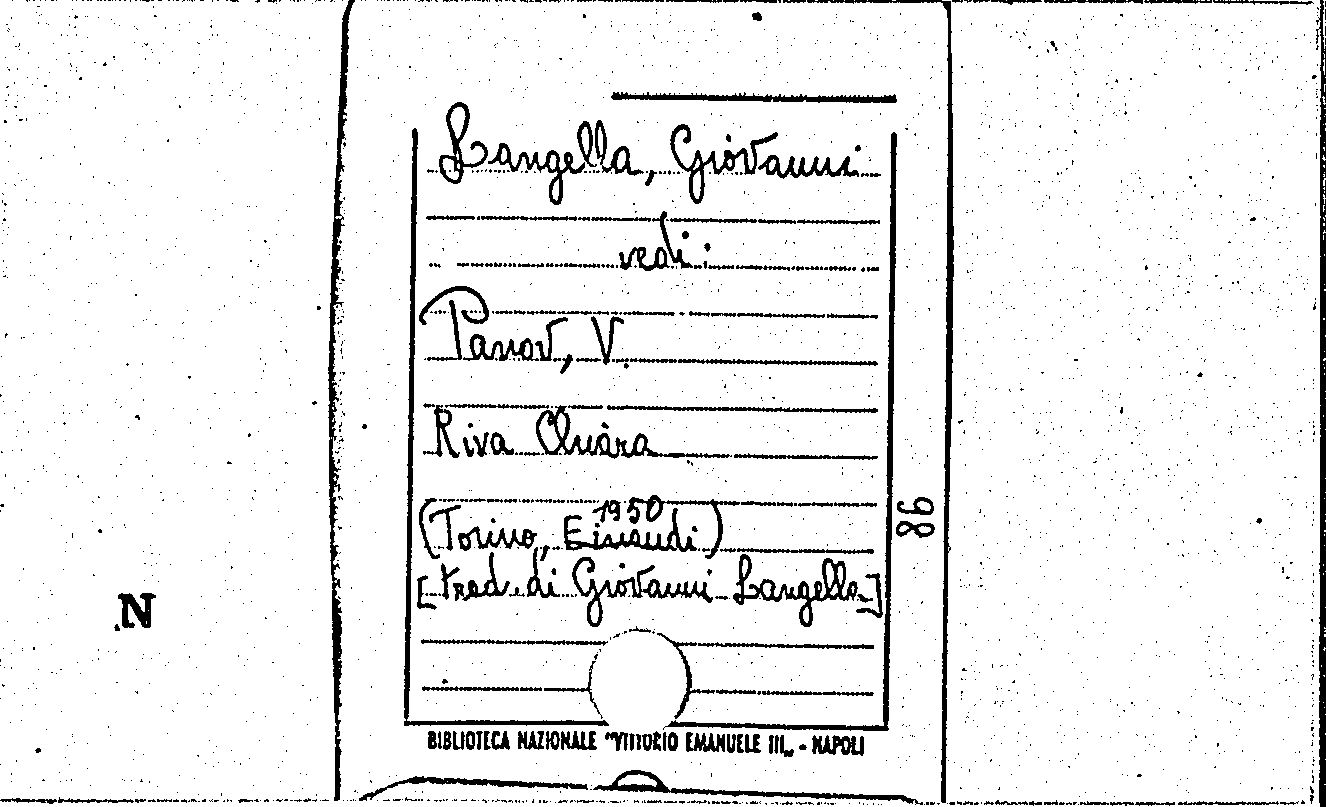 Langella, Giovanni
vedi:
Panov, V.
Riva Chiara
(Torino, Einaudi 1950)
[trad. di Giovanni Langella]
98
N
BIBLIOTECA NAZIONALE "VITTORIO EMANUELE III„ - NAPOLI